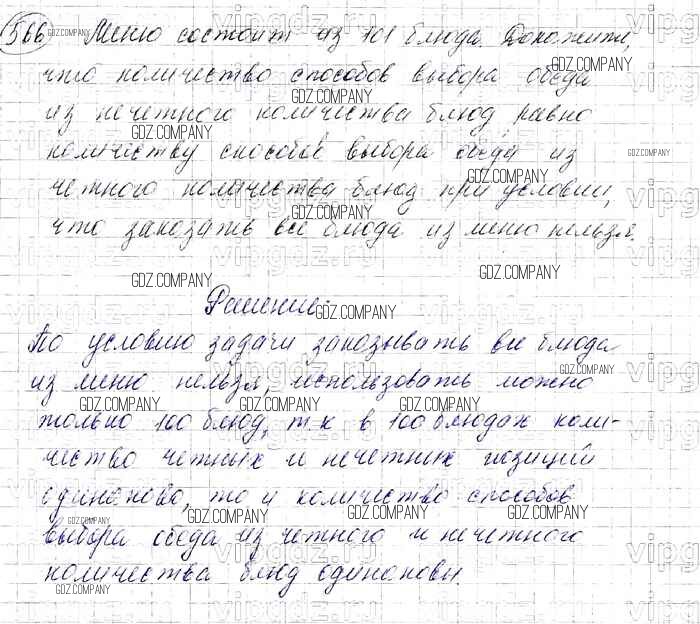 566 Меню состоит из 101 блюда. Докажите,
что количество способов выбора обеда
из нечетного количества блюд равно
количеству способов выбора обеда из
четного количества блюд при условии,
что заказать все блюда из меню нельзя.
Решение:
По условию задачи заказывать все блюда
из меню нельзя, использовать можно
только 100 блюд, т к в 100 блюдах коли-
чество четных и нечетных позиций
одинаково, то и количество способов
выбора обеда из четного и нечетного
количества блюд одинаковы
GDZ.COMPANY
vipgdz.ru